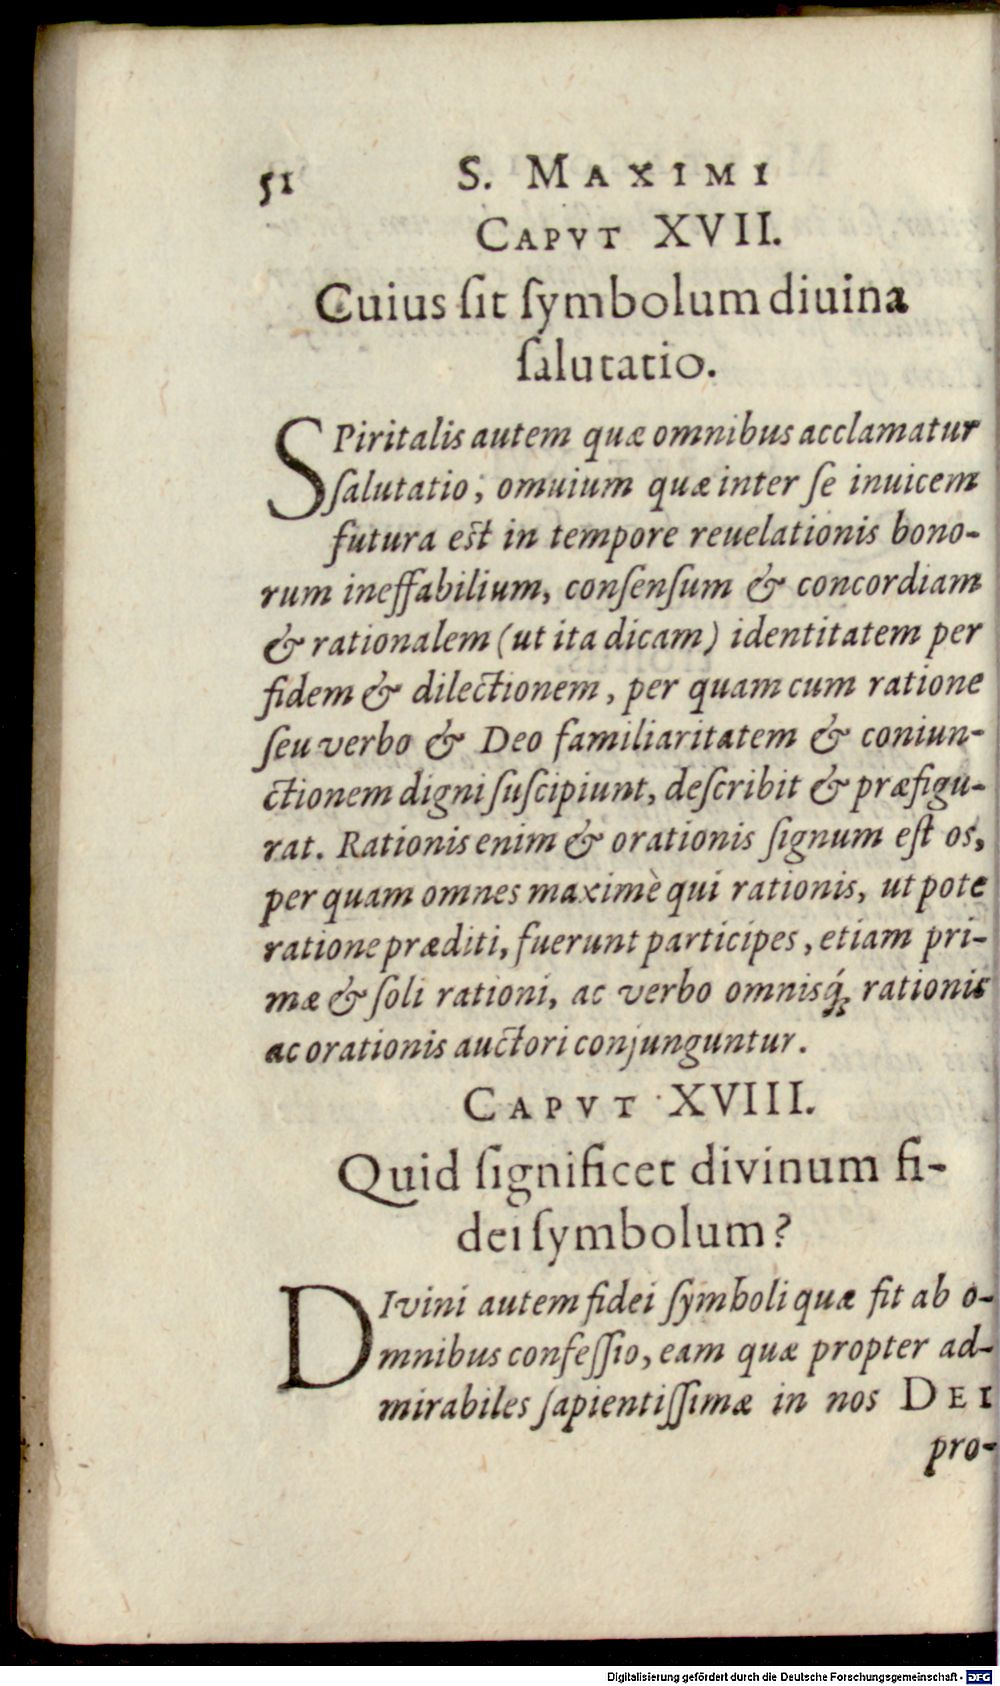 51 S. MAXIMI
CAPVT XVII.
Cuius ſit ſymbolum diuina
ſalutatio.
SPiritalis autem quæ omnibus acclamatur
ſalutatio, omuium quæ inter ſe inuicem
futura est in tempore reuelationis bono-
rum ineffabilium, conſenſum & concordiam
& rationalem (ut ita dicam) identitatem per
fidem & dilectionem, per quam cum ratione
ſeu verbo & Deo familiaritatem & coniun-
ctionem digni ſuſcipiunt, deſcribit & præfigu-
rat. Rationis enim & orationis ſignum eſt os,
per quam omnes maximè qui rationis, ut pote
ratione præditi, fuerunt participes, etiam pri-
mæ & ſoli rationi, ac verbo omnisq́; rationis
ac orationis auctori conjunguntur.
CAPVT XVIII.
Quid ſignificet divinum fi-
dei ſymbolum?
DIvini autem fidei ſymboli quæ fit ab o-
mnibus confeſſio, eam quæ propter ad-
mirabiles ſapientiſſimæ in nos DEI
pro-
Digitalisierung gefördert durch die Deutsche Forschungsgemeinschaft - DFG